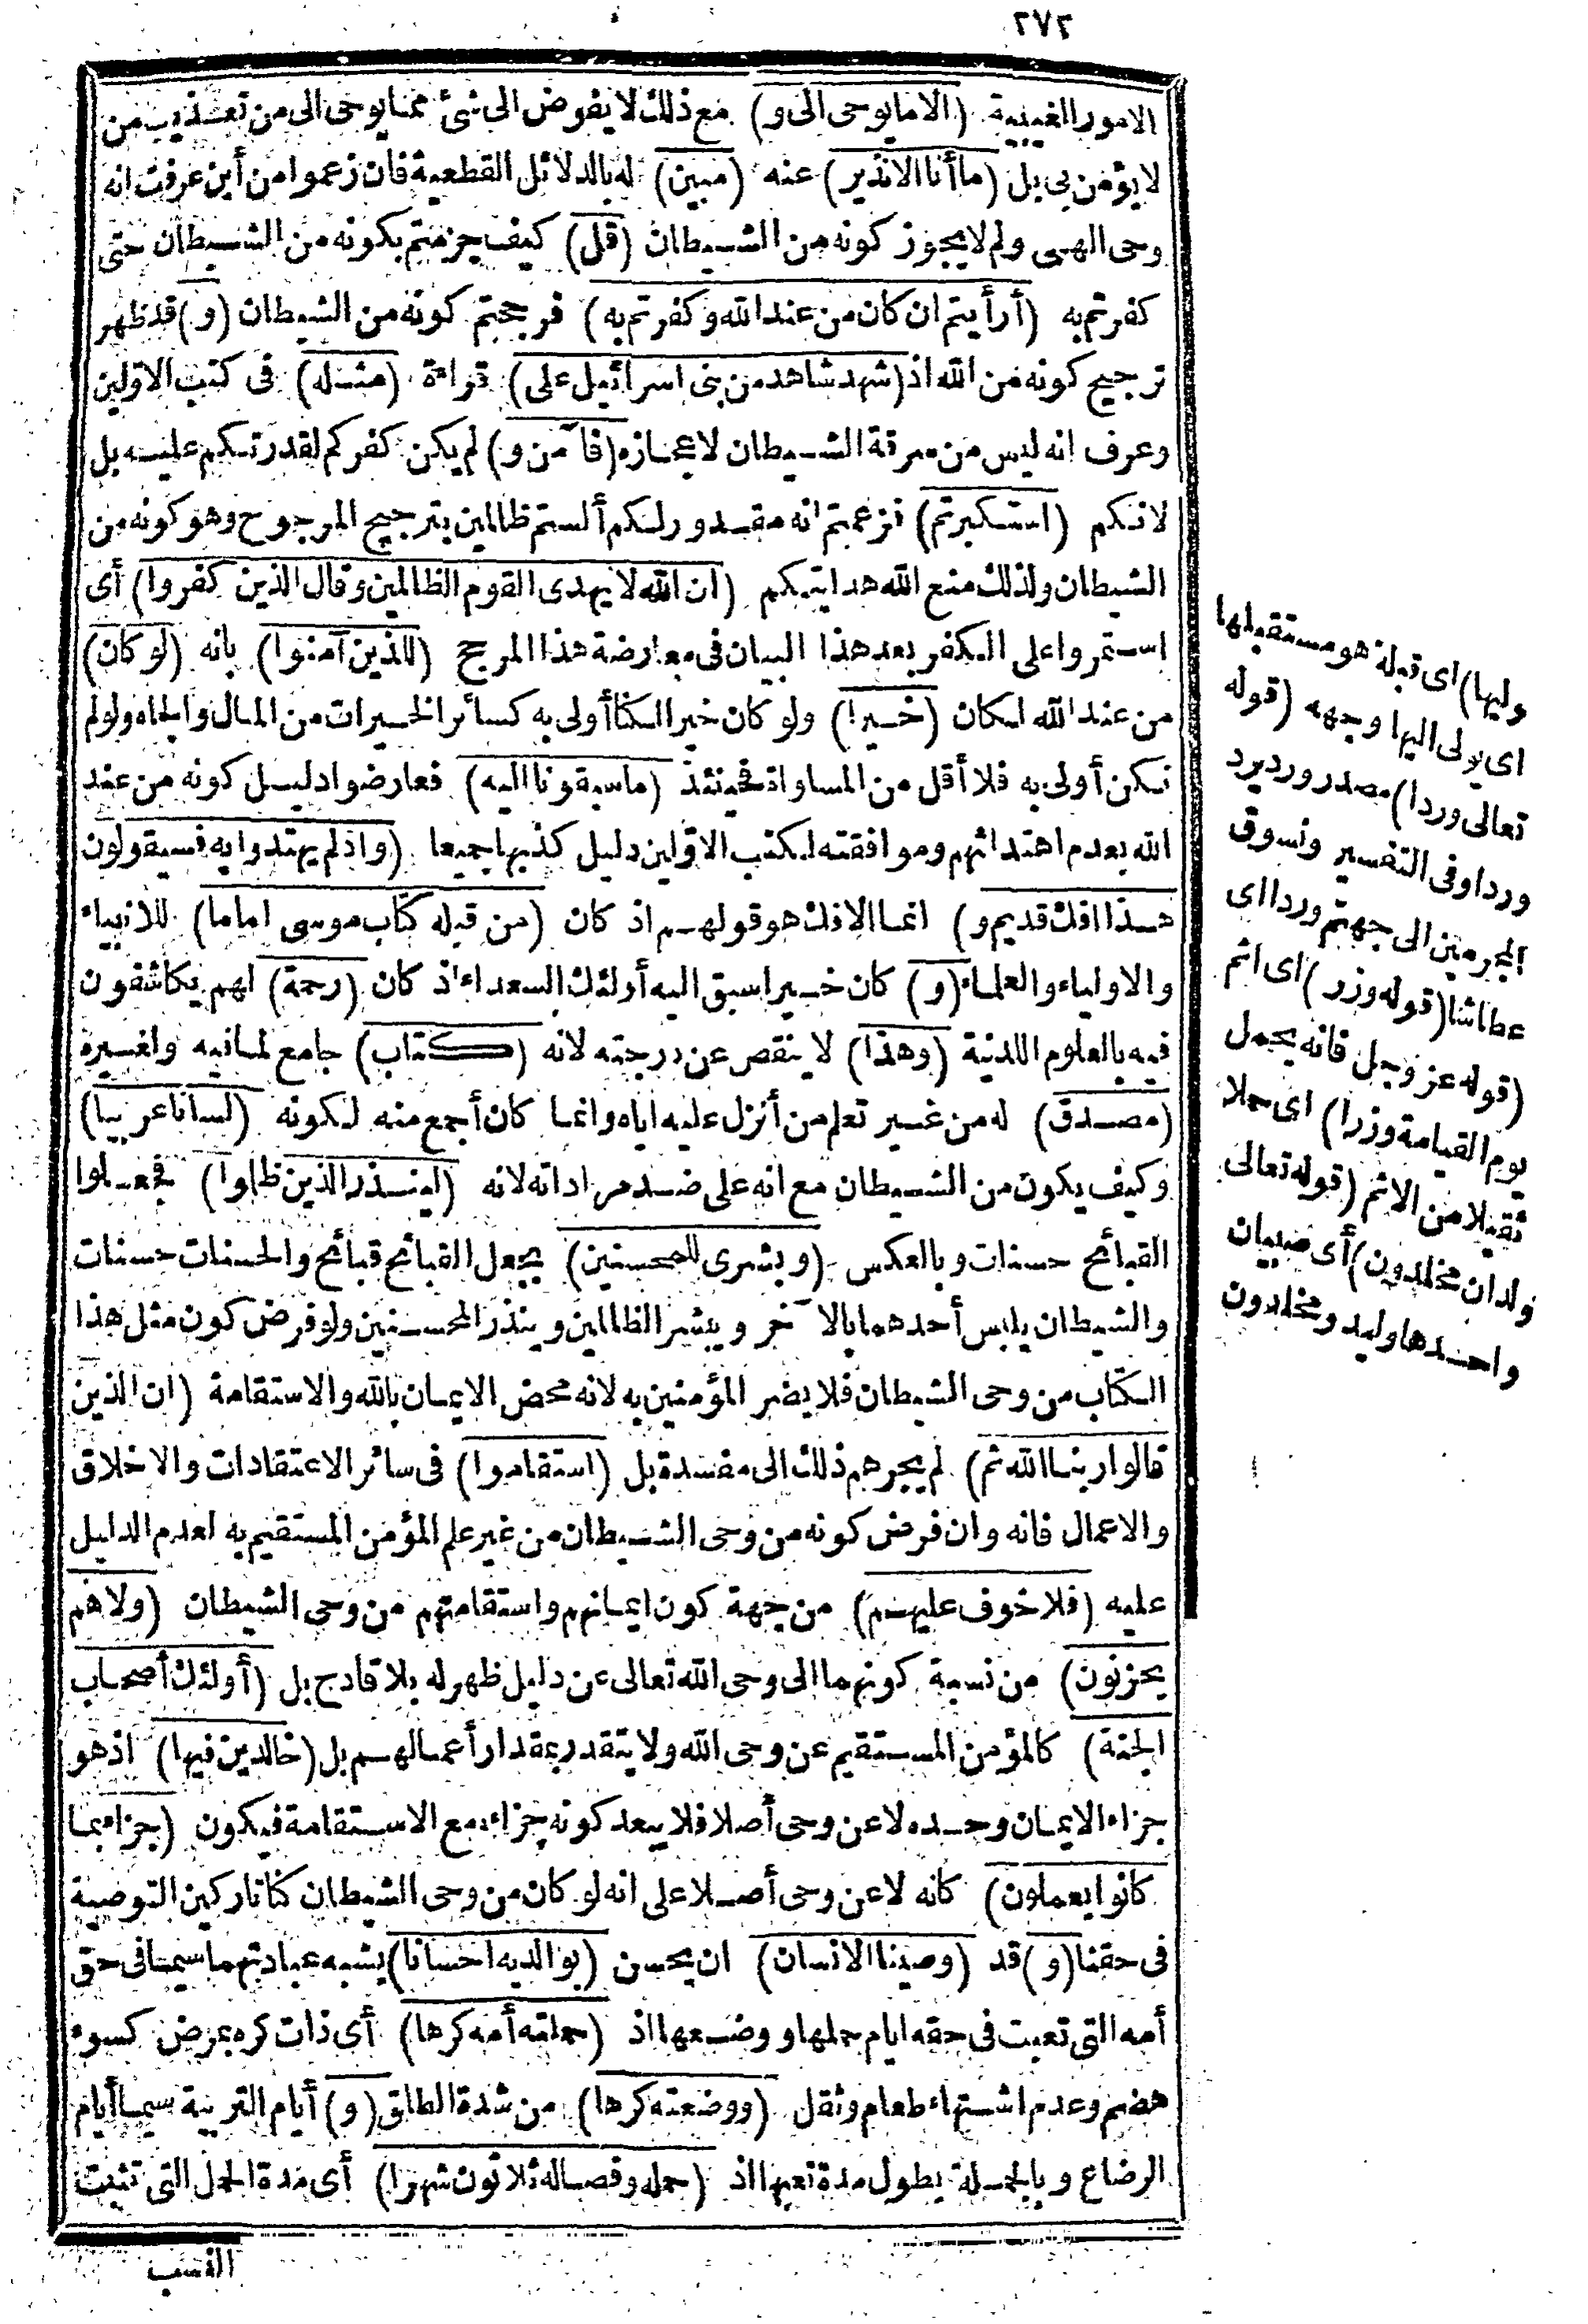 ٢٧٢
الامور الغيبية (الا ما يوحى الى و) مع ذلك لا يفوض الى شئ مما يوحى الى من تعذيب من
لا يؤمن بى بل (ما أنا الا نذير) عنه (مبين) له بالدلائل القطعية فان زعموا من أين عرفت انه
وحى الهى ولم لا يجوز كونه من الشيطان (قل) كيف جزمتم بكونه من الشيطان حتى
كفرتم به (أرأيتم ان كان من عند الله وكفرتم به) فرجحتم كونه من الشيطان (و) قد ظهر
ترجيح كونه من الله اذ (شهد شاهد من بنى اسرائيل على) قراءة (مثله) فى كتب الاولين
وعرف انه ليس من سرقة الشيطان لاعجازه (فا من و) لم يكن كفركم لقدرتكم عليه بل
لانكم (استكبرتم) فزعمتم انه مقدور لكم ألستم ظالمين بترجيح المرجوح وهو كونه من
الشيطان ولذلك منع الله هدايتكم (ان الله لا يهدى القوم الظالمين وقال الذين كفروا) أى
استمروا على الكفر بعد هذا البيان فى معارضة هذا المرجح (للذين آمنوا) بانه (لو كان)
من عند الله لكان (خيرا) ولو كان خيرا لكنا أولى به كسائر الخيرات من المال والجاه ولولم
نكن أولى به فلا أقل من المساواة فحينئذ (ما سبقونا اليه) فعارضوا دليل كونه من عند
الله بعدم اهتدائهم وموافقته لكتب الاولين دليل كذبها جميعا (واذ لم يهتدوا به فسيقولون
هذا افك قديم و) انما الافك هو قولهم اذ كان (من قبله كتاب موسى اماما) للانبياء
والاولياء والعلماء (و) كان خيرا سبق اليه أولئك السعداء اذ كان (رحمة) لهم يكاشفون
فيه بالعلوم اللدنية (وهذا) لا ينقص عن درجته لانه (كتاب) جامع لمافيه ولغيره
(مصدق) له من غير تعلم من أنزل عليه اياه وانما كان أجمع منه لكونه (لسانا عربيا)
وكيف يكون من الشيطان مع انه على ضد مراداته لانه (لينذر الذين ظلموا) فجعلوا
القبائح حسنات وبالعكس (وبشرى للمحسنين) يجعل القبائح قبائح والحسنات حسنات
والشيطان يلبس أحدهما بالا خر ويبشر الظالمين وينذر المحسنين ولو فرض كون مثل هذا
الكتاب من وحى الشيطان فلا يضر المؤمنين به لانه محض الايمان بالله والاستقامة (ان الذين
قالوا ربنا الله ثم) لم يجرهم ذلك الى مفسدة بل (استقاموا) فى سائر الاعتقادات والاخلاق
والاعمال فانه وان فرض كونه من وحى الشيطان من غير علم المؤمن المستقيم به لعدم الدليل
عليه (فلا خوف عليهم) من جهة كون ايمانهم واستقامتهم من وحى الشيطان (ولا هم
يحزنون) من نسبة كونهما الى وحى الله تعالى عن دليل ظهر له بلا قادح بل (أولئك أصحاب
الجنة) كالمؤمن المستقيم عن وحى الله ولا يتقدر بمقدار أعمالهم بل (خالدين فيها) اذ هو
جزاء الايمان وحده لا عن وحى أصلا فلا يبعد كونه جزاءه مع الاستقامة فيكون (جزاء بما
كانوا يعملون) كانه لا عن وحى أصلا على انه لو كان من وحى الشيطان كنا تاركين التوصية
فى حقنا (و) قد (وصينا الانسان) ان يحسن (بوالديه احسانا) يشبه عبادتهما سيما فى حق
أمه التى تعبت فى حقه ايام حملها ووضعها اذ (حملته أمه كرها) أى ذات كره بمرض كسوء
هضم وعدم اشتهاء طعام وثقل (ووضعته كرها) من شدة الطلق (و) أيام التربية سيما أيام
الرضاع وبالجملة يطول مدة تعبها اذ (حمله وفصاله ثلاثون شهرا) أى مدة الحمل التى تثبت
النسب
وليها) اى قبلة هو مستقبلها
اى يولى اليها وجهه (قوله
تعالى وردا) مصدر ورد يرد
وردا وفى التفسير ونسوق
المجرمين الى جهنم وردا اى
عطاشا (قوله وزر) اى اثم
(قوله عز وجل فانه يحمل
يوم القيامة وزرا) اى حملا
ثقيلا من الاثم (قوله تعالى
ولدان مخلدون) أى صبيان
واحدها وليد ومخلدون